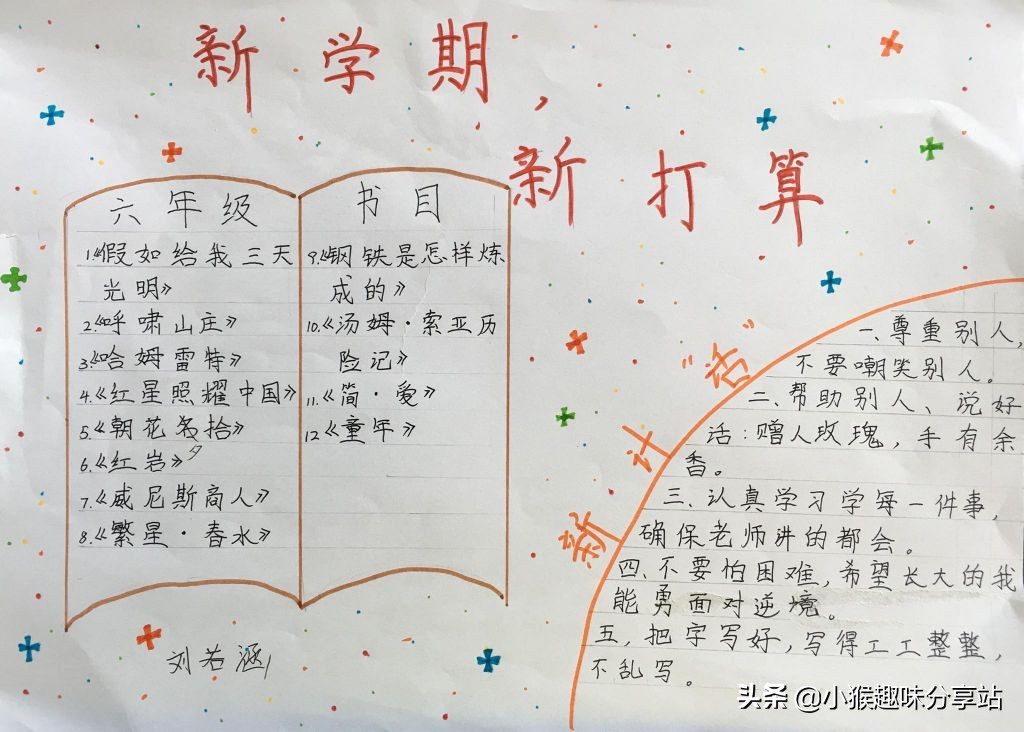 新学期，
新打算
六年级
1.《假如给我三天
光明》
2.《呼啸山庄》
3.《哈姆雷特》
4.《红星照耀中国》
5.《朝花夕拾》
6.《红岩》
7.《威尼斯商人》
8.《繁星·春水》
书目
9.《钢铁是怎样炼
成的》
10.《汤姆·索亚历
险记》
11.《简·爱》
12《童年》
刘若涵
新计"话"
一、尊重别人，
不要嘲笑别人。
二、帮助别人、说好
话：赠人玫瑰，手有余
香。
三、认真学习学每一件事，
确保老师讲的都会。
四、不要怕困难，希望长大的我
能勇面对逆境。
五，把字写好，写得工工整整，
不乱写。
头条 @小猴趣味分享站